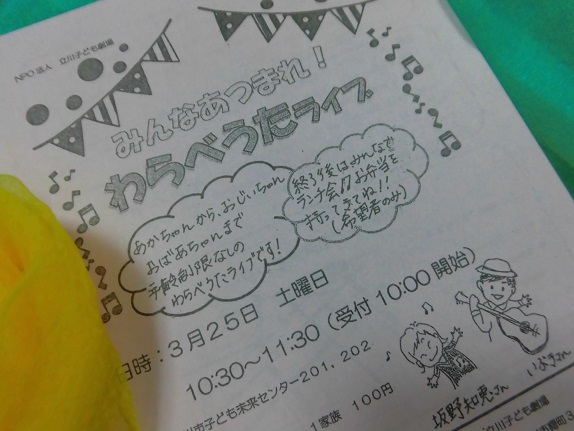 NPO法人 立川子ども劇場
みんなあつまれ!
わらべうたライブ
あかちゃんから、おじいちゃん
おばあちゃんまで
年齢制限なしの
わらべうたライブです!
終了後は、みんなで
ランチ会♫お弁当を
持ってきてね!!
(希望者のみ)
日時:3月25日 土曜日
10:30~11:30(受付 10:00 開始)
川市子ども未来センター201, 202
1家族 100円
坂野知恵さん
いぶきさん
立川子ども劇場